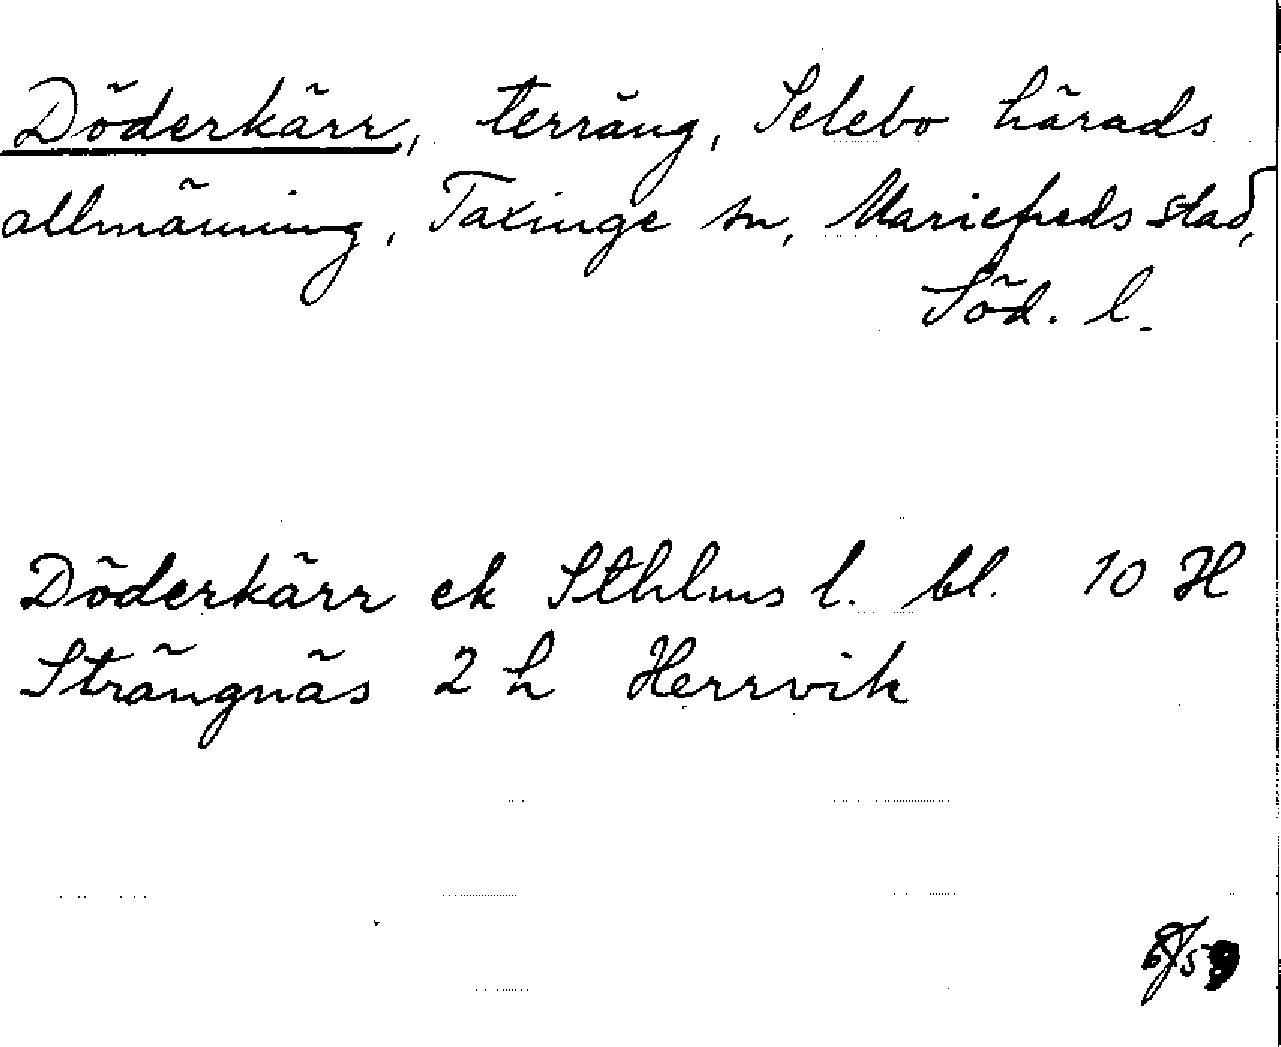 Döderkärr, terräng, Selebo härads
allmänning, Taxinge sn, Mariefreds stad,
Söd. l.
Döderkärr ek Sthlms l. bl. 10 H
Strängnäs 2 h Herrvik